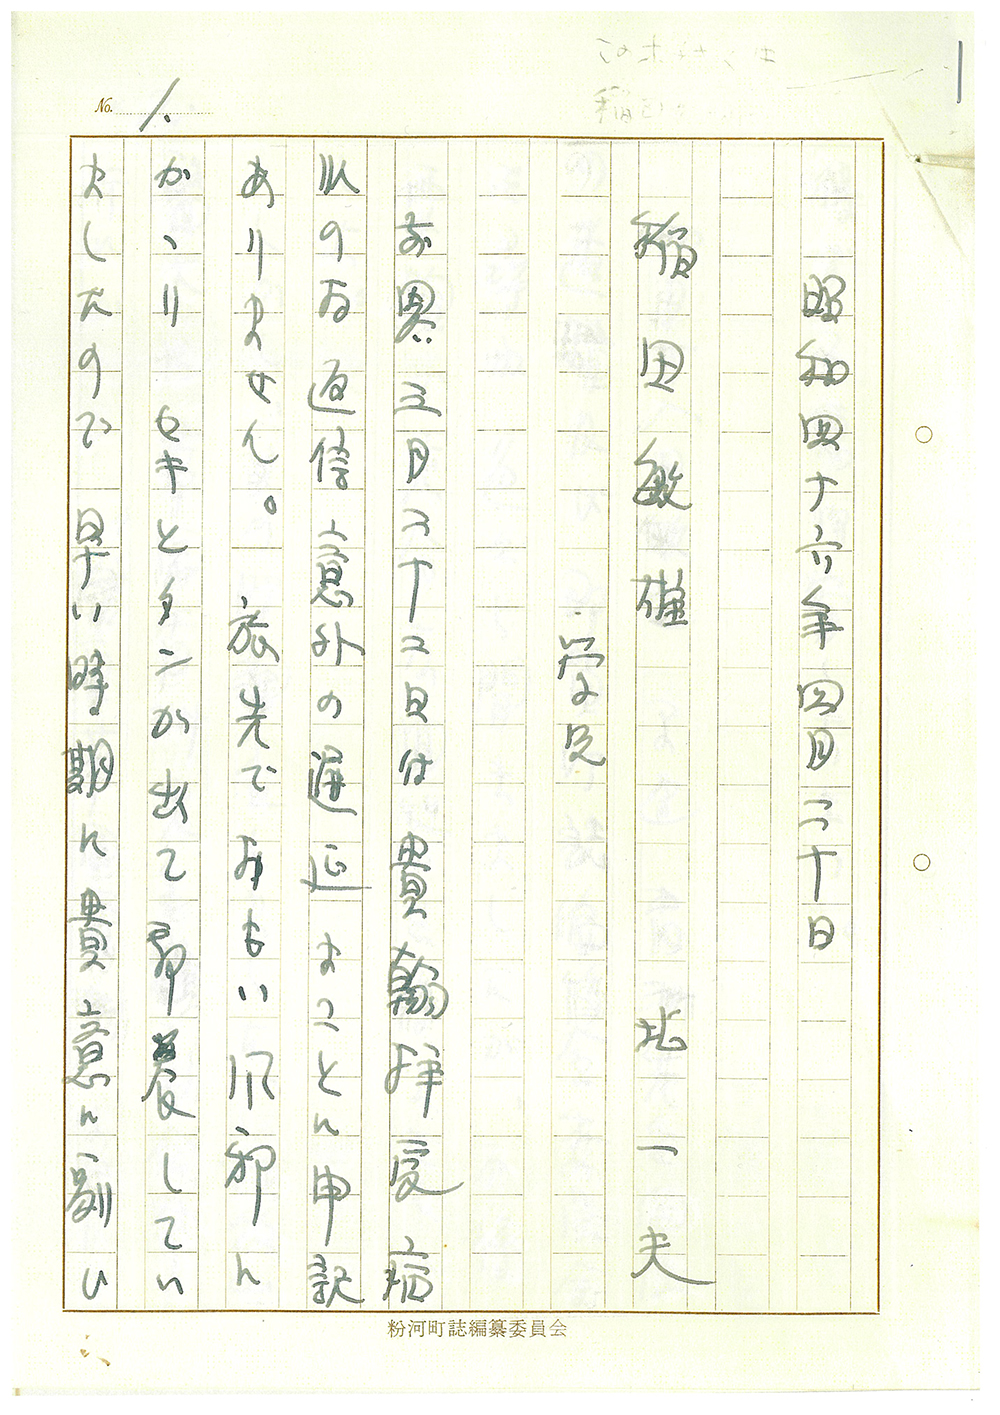 No. 1.
昭和四十六年四月二十日
稲田敏雄
北一夫
学兄
前略 三月二十二日付貴翰拝受 病
臥の為返信意外の遅延まことに申訳
ありません。 旅先で
もい風邪に
かゝり セキとタンが出て
養してい
ましたので 早い時期に貴意に副ひ
粉河町誌編纂委員会